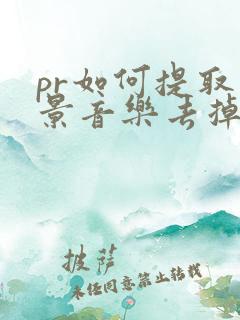 pr如何提取
景音乐去掉
披萨
未经同意禁止转载